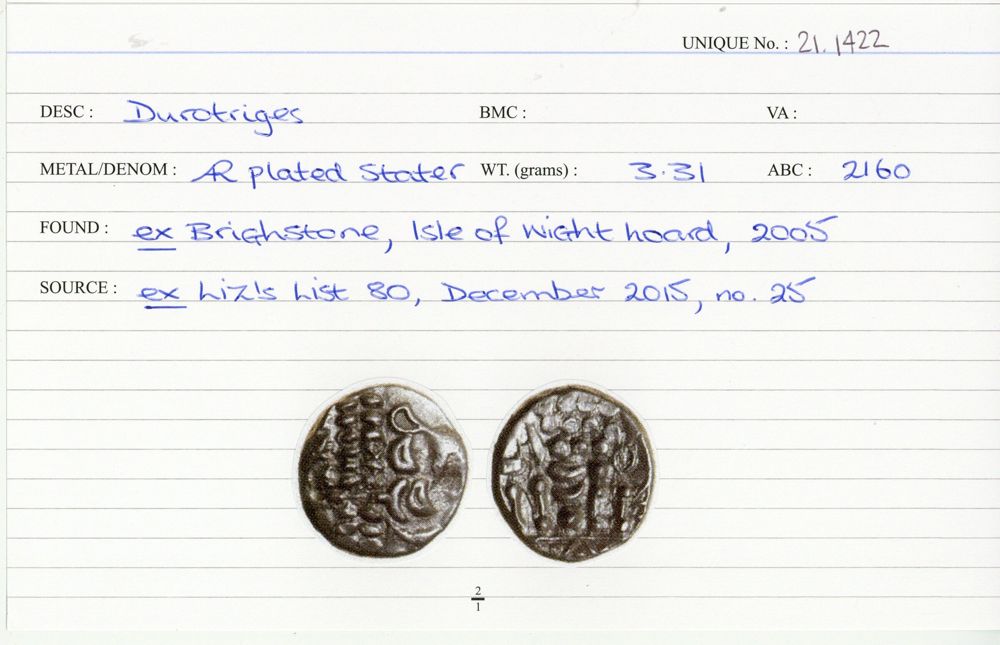 UNIQUE No. : 21.1422
DESC : Durotriges BMC : VA :
METAL/DENOM : AR plated Stater WT. (grams) : 3.31 ABC : 2160
FOUND : ex Brighstone, Isle of Wight hoard, 2005
SOURCE : ex Liz's List 80, December 2015, no. 25
2
1